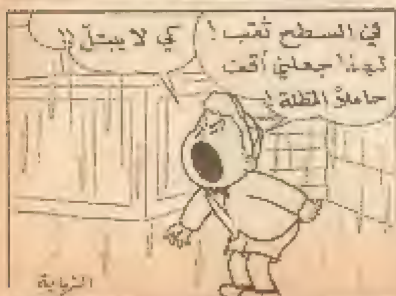 في السطح ثقب !
لهذا جعلني أقف
حاملاً المظلة !
كي لا يبتلّ !!